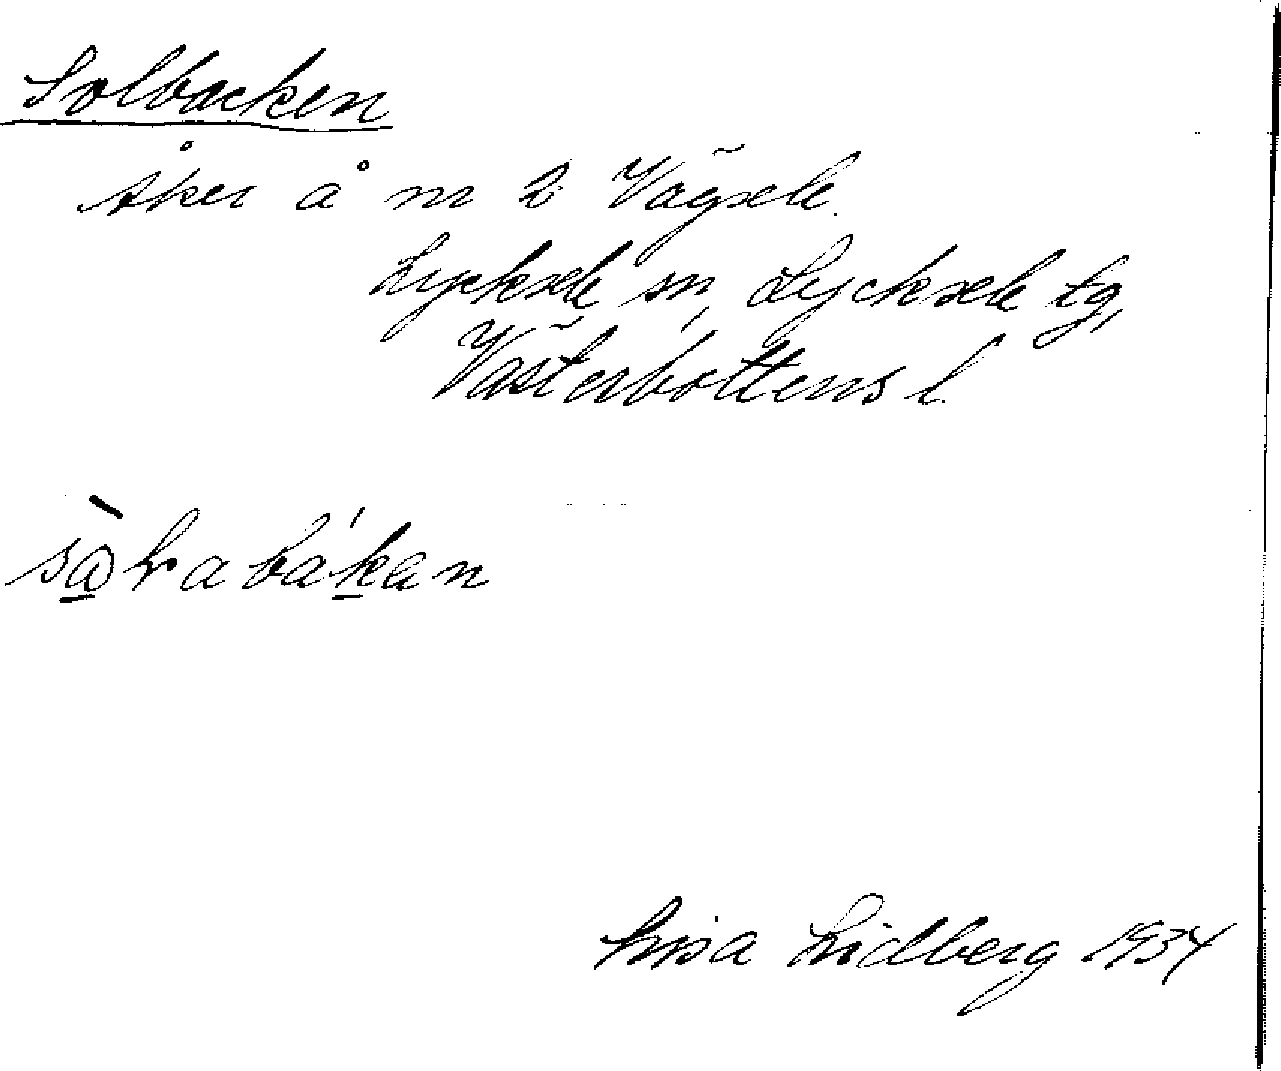 Solbacken
åker å nr 2 Vägsele.
Lycksele sn, Lycksele tg,
Västerbottens l.
Lisa Lidberg 1934